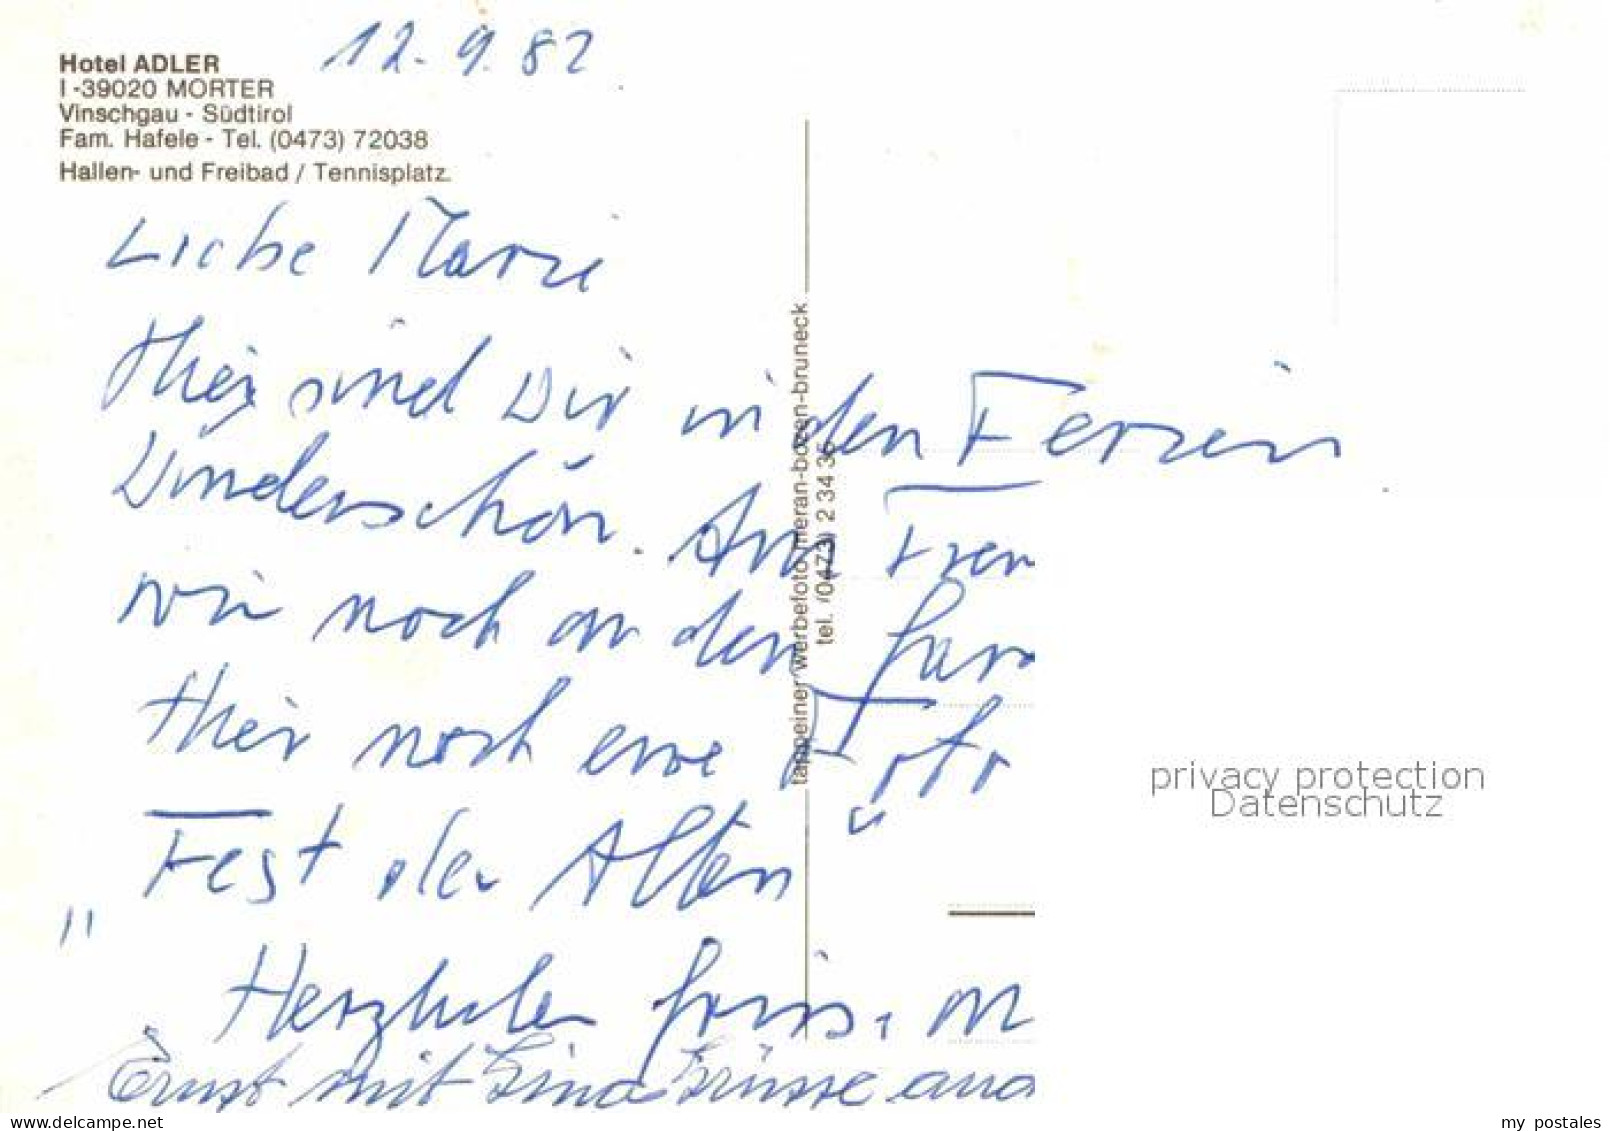 Hotel ADLER
I-39020 MORTER
Vinschgau - Südtirol
Fam. Hafele - Tel. (0473) 72038
Hallen- und Freibad / Tennisplatz.
12. 9. 82
Liebe Marie
Hier sind wir in den Ferien
Wunderschön.
wir noch an den
Hier noch eine
Fest der Alten
Herzlichen
Ernst mit Lina Grüsse
tappeiner werbefoto meran-bozen-bruneck
tel. (0473) 2 34 36
privacy protection
Datenschutz
www.delcampe.net
my_postales